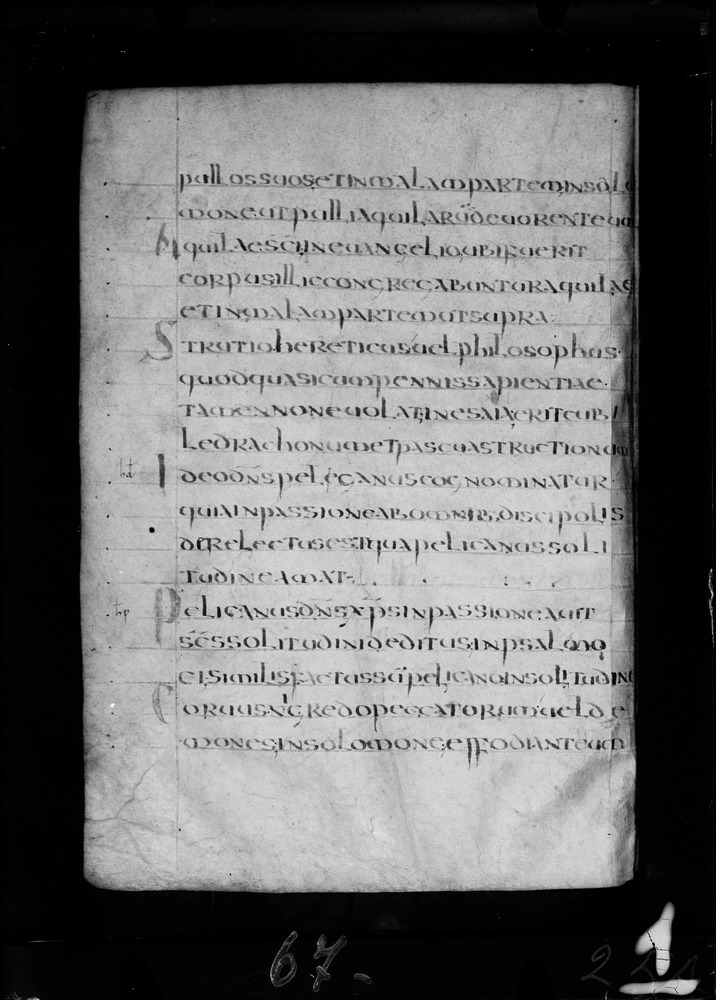 pullossuosetinmalamparteminsolo
moneutpulliaquilarūdeuorenteum
Aquilaescīineuangelioubifuerit
corpusilliccongregabunturaquilae
etinmalampartemutsupra
Strutiohereticusuelphilosophus
quodquasicumpennissapientiae
tamennoneuolat,inesaia,eritcubi
ledrachonumetpascuastructionum
Ideodn̄spelecanuscognominatur
quiainpassioneabomnib;discipolis
derelectusest,quiapelicanussoli
tudineamat
Pelicanusdn̄sxp̄sinpassioneaut
sc̄ssolitudinideditus,inpsalmo
cisimilisfactussūpelicanoinsolitudine
Coruusnigredopeccatorumuelde
mones,insolomoneeffodianteum
67.
1